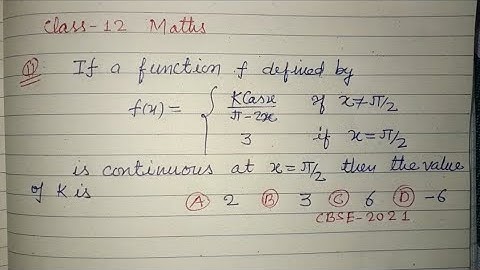 Class-12 Maths
Q1) If a function f defined by
f(x) = { KCosx/π-2x if x≠π/2
3 if x=π/2
is continuous at x=π/2 then the value
of K is
(A) 2 (B) 3 (C) 6 (D) -6
CBSE-2021